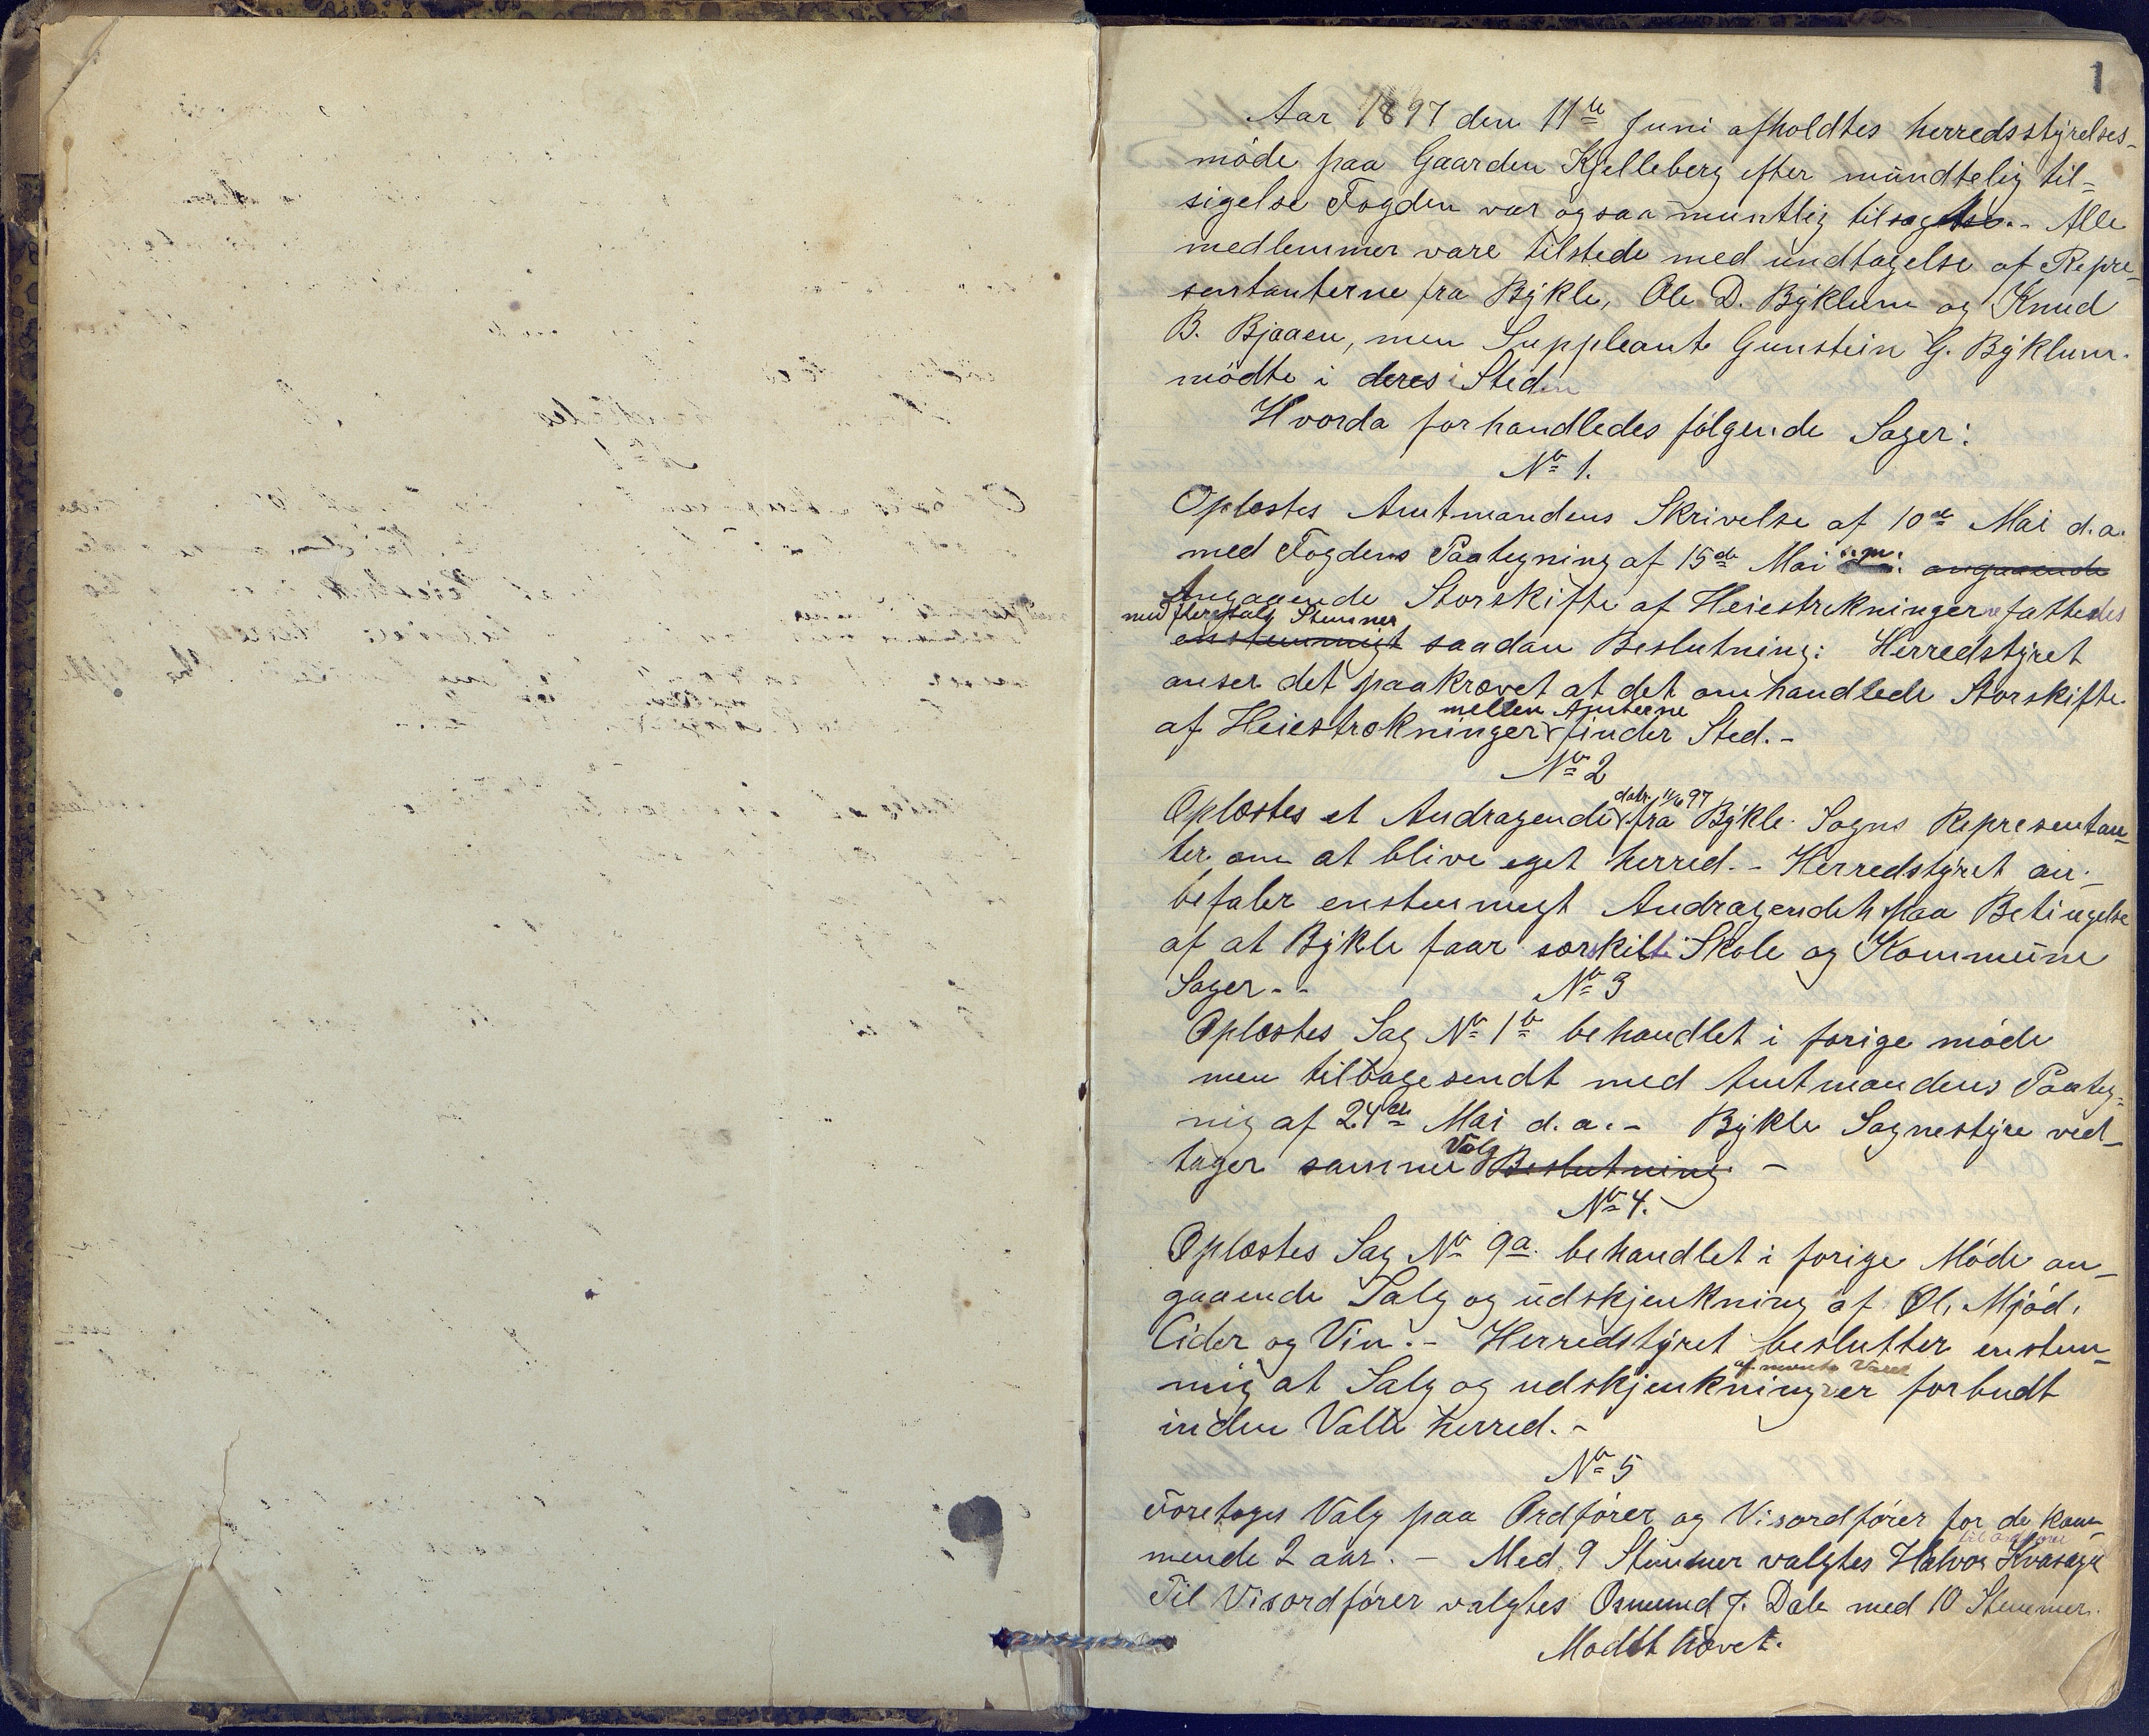 1
Aar 1897 den 11te Juni afholdtes herredsstyrelses-
møde paa Gaarden Kjelleberg efter mundtelig til-
sigelse Fogden var ogsaa muntlig tilsagt. - Alle
medlemmer vare tilstede med undtagelse af Repre-
sentanterne fra Bykle, Ole D. Byklum og Knud
B. Bjaaen, men Suppleant Gunstein G. Byklum
mødte i deres Sted
Hvorda forhandledes følgende Sager:
No 1.
Oplæstes Amtmandens Skrivelse af 10de Mai d.a.
med Fogdens Paategning af 15de Mai s.m. angaaende
Angaaende Storskifte af Heiestrekningerne fattedes
med flertalg Stemmer
enstemmigt saadan Beslutning: Herredstyret
anser det paakrævet at det omhandlede Storskifte
mellem Amterne
af Heiestrækninger finder Sted. -
No 2
datr. 11/6 97
Oplæstes et Andragende fra Bykle Sogns Representan-
ter om at blive eget herred. - Herredstyret an-
befaler enstemmigt Andragendet paa Betingelse
af at Bykle faar særskilte Skole og Kommune
Sager. -
No 3
Oplæstes Sag No 1b behandlet i forige møde
men tilbagesendt med Amtmandens Paateg-
nig af 24de Mai d.a. - Bykle Sognestyre ved-
Valg
tager samme Beslutning -
No 4.
Oplæstes Sag No 9a. behandlet i forige Møde an-
gaaende Salg og udskjenkning af Øl, Mjød,
Cider og Vin. - Herredstyret beslutter enstem-
af nævnte Varer
mig at Salg og udskjenkning er forbudt
inden Valle herred. -
No 5
Foretoges Valg paa Ordfører og Visordfører for de kom-
til ordfører
mende 2 aar. - Med 9 Stemmer valgtes Halvor Kvasager
Til Visordfører valgtes Osmund J. Dale med 10 Stemmer.
Mødet hævet.